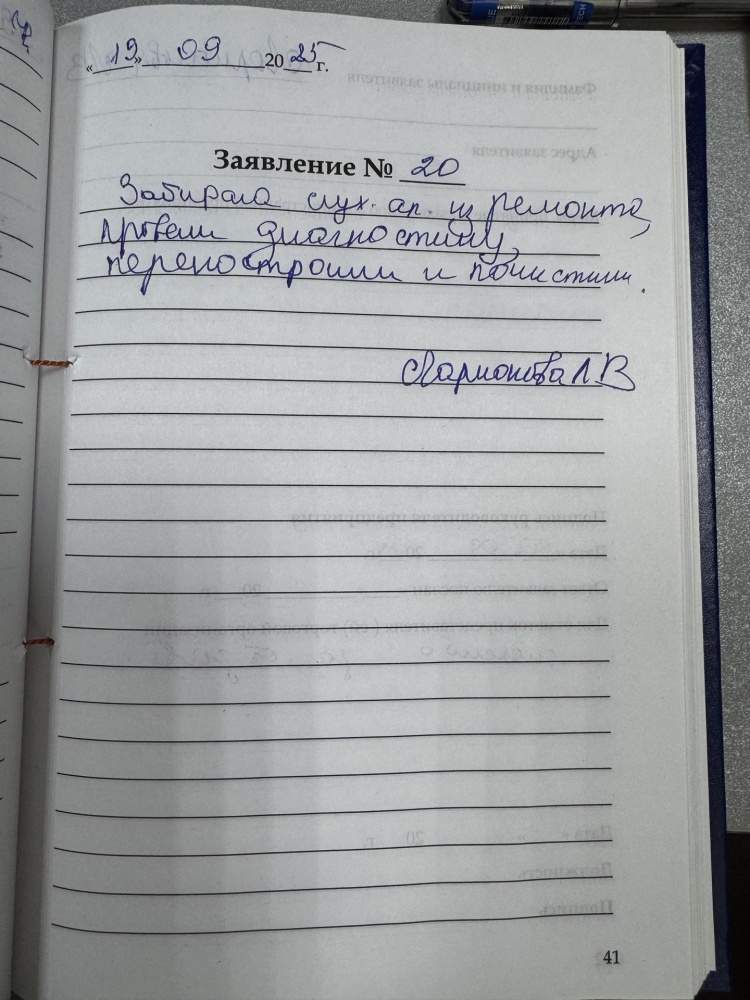 «19» 09 2025 г.
Заявление № 20
Забирала слух. ап. из ремонта,
провели диагностику,
перенастроили и почистили.
Ларионова Л.В
41